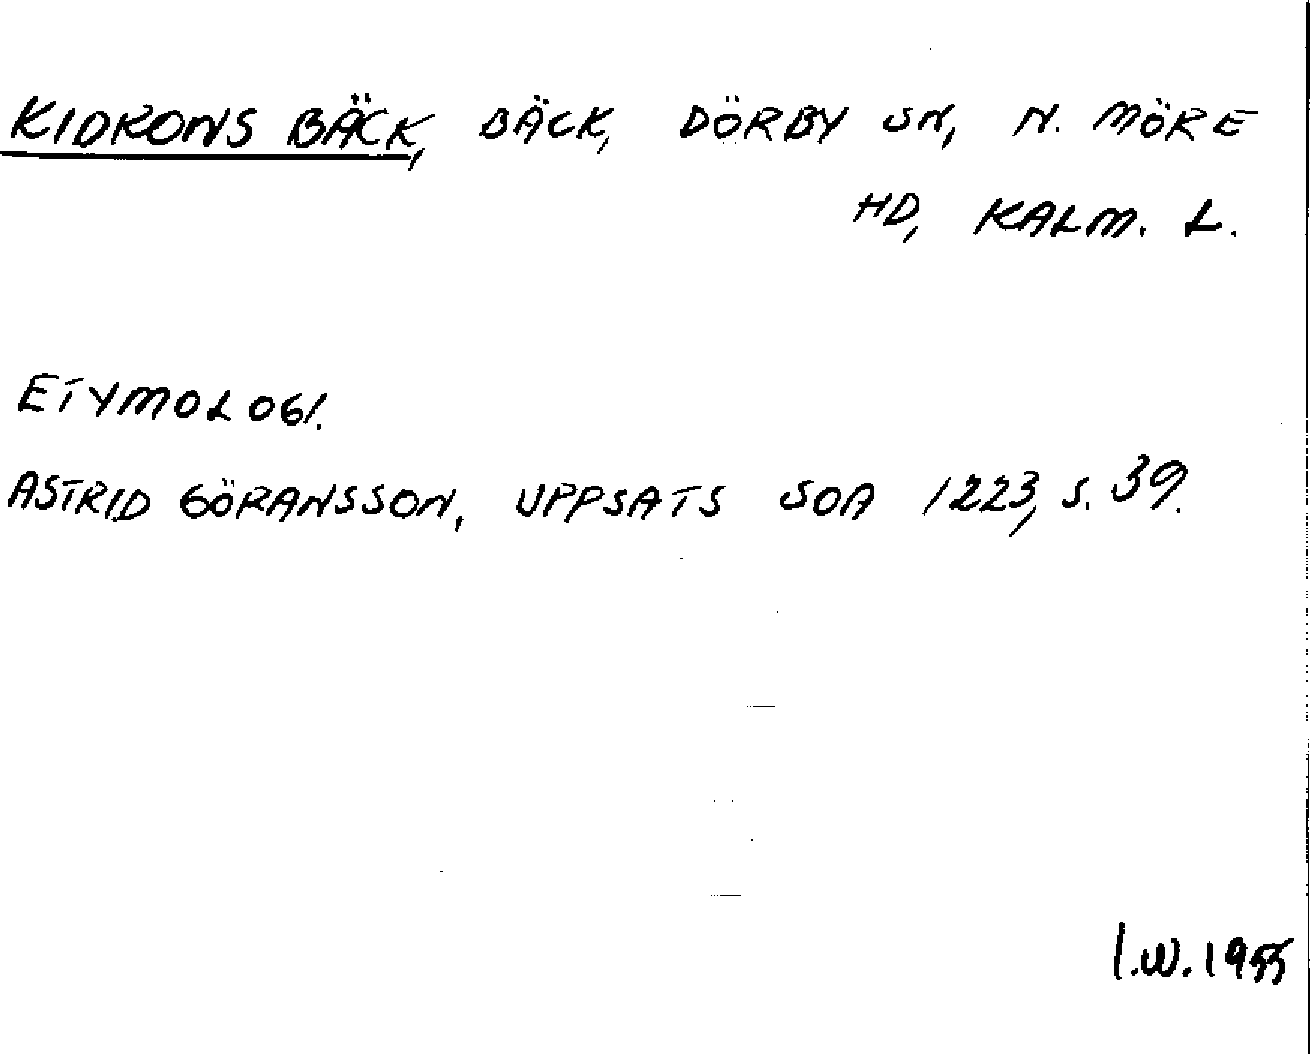 KIDRONS BÄCK, BÄCK, DÖRBY SN, N. MÖRE
HD, KALM. L.
ETYMOLOGI.
ASTRID GÖRANSSON, UPPSATS SOA 1223, S. 39.
I.W. 1955